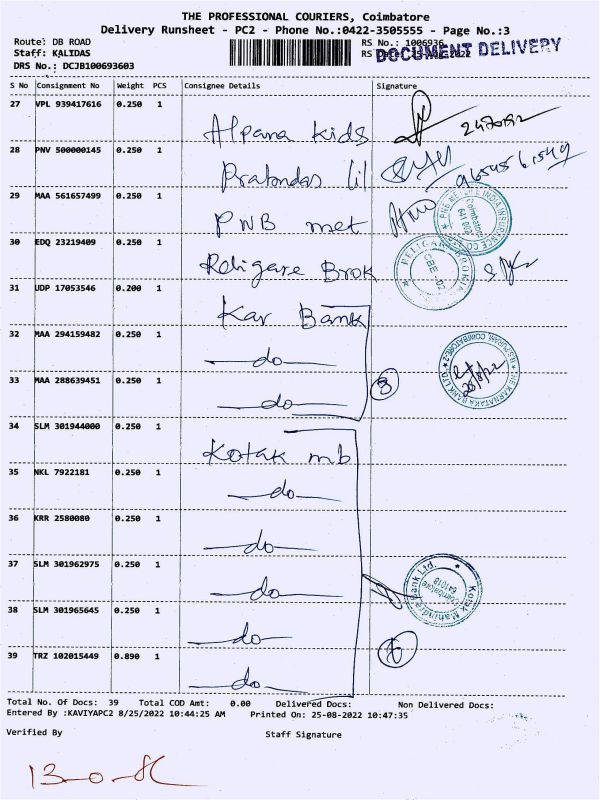 THE PROFESSIONAL COURIERS, Coimbatore
Delivery Runsheet - PC2 - Phone No.:0422-3505555 - Page No.:3
Route: DB ROAD RS No.: 1006936
Staff: KALIDAS DOCUMENT DELIVERY
DRS No.: DCJB100693603
S No Consignment No Weight PCS Consignee Details Signature
27 VPL 939417616 0.250 1
Alpana kids
28 PNV 500000145 0.250 1
lil 9654561549
29 MAA 561657499 0.250 1
PNB met
PNB METLIFE INDIA INSURANCE CO
Coimbatore
30 EDQ 23219409 0.250 1
Religare Brok
CBE - 02
31 UDP 17053546 0.200 1
Kar Bank
32 MAA 294159482 0.250 1
do
33 MAA 288639451 0.250 1
do 3
THE KARNATAKA BANK LTD. R.S.PURAM, COIMBATORE-2
34 SLM 301944000 0.250 1
Kotak mb
35 NKL 7922181 0.250 1
do
36 KRR 2580080 0.250 1
do
37 SLM 301962975 0.250 1
do
Kotak Mahindra Bank Ltd.
Coimbatore
641018
38 SLM 301965645 0.250 1
do
39 TRZ 102015449 0.890 1
do
Total No. Of Docs: 39 Total COD Amt: 0.00 Delivered Docs: Non Delivered Docs:
Entered By :KAVIYAPC2 8/25/2022 10:44:25 AM Printed On: 25-08-2022 10:47:35
Verified By Staff Signature